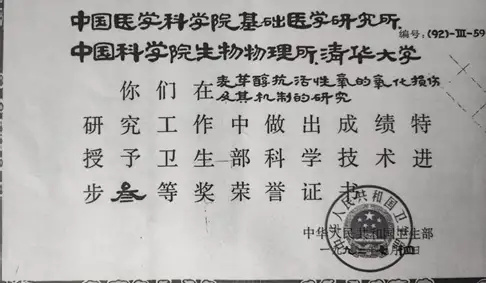 中国医学科学院基础医学研究所.
编号:(92)-III-59
中国科学院生物物理所.清华大学
你们在麦芽醇抗活性氧的氧化损伤
及其机制的研究
研究工作中做出成绩特
授予卫生部科学技术进
步叁等奖荣誉证书
中华人民共和国卫生部
中华人民共和国卫生部